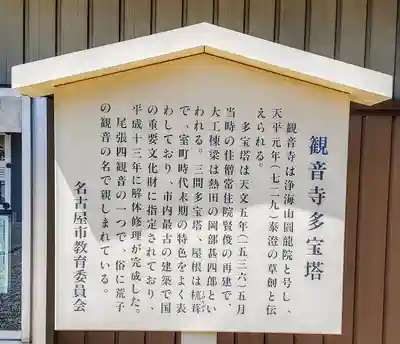 観音寺多宝塔
観音寺は浄海山圓龍院と号し、
天平元年(七二九)泰澄の草創と伝
えられる。
多宝塔は天文五年(一五三六)五月
当時の住僧常住院賢俊の再建で、
大工棟梁は熱田の岡部甚四郎とい
われる。三間多宝塔、屋根は杮葺
で、室町時代末期の特色をよく表
わしており、市内最古の建築で国
の重要文化財に指定されており、
平成十三年に解体修理が完成した。
尾張四観音の一つで、俗に荒子
の観音の名で親しまれている。
名古屋市教育委員会